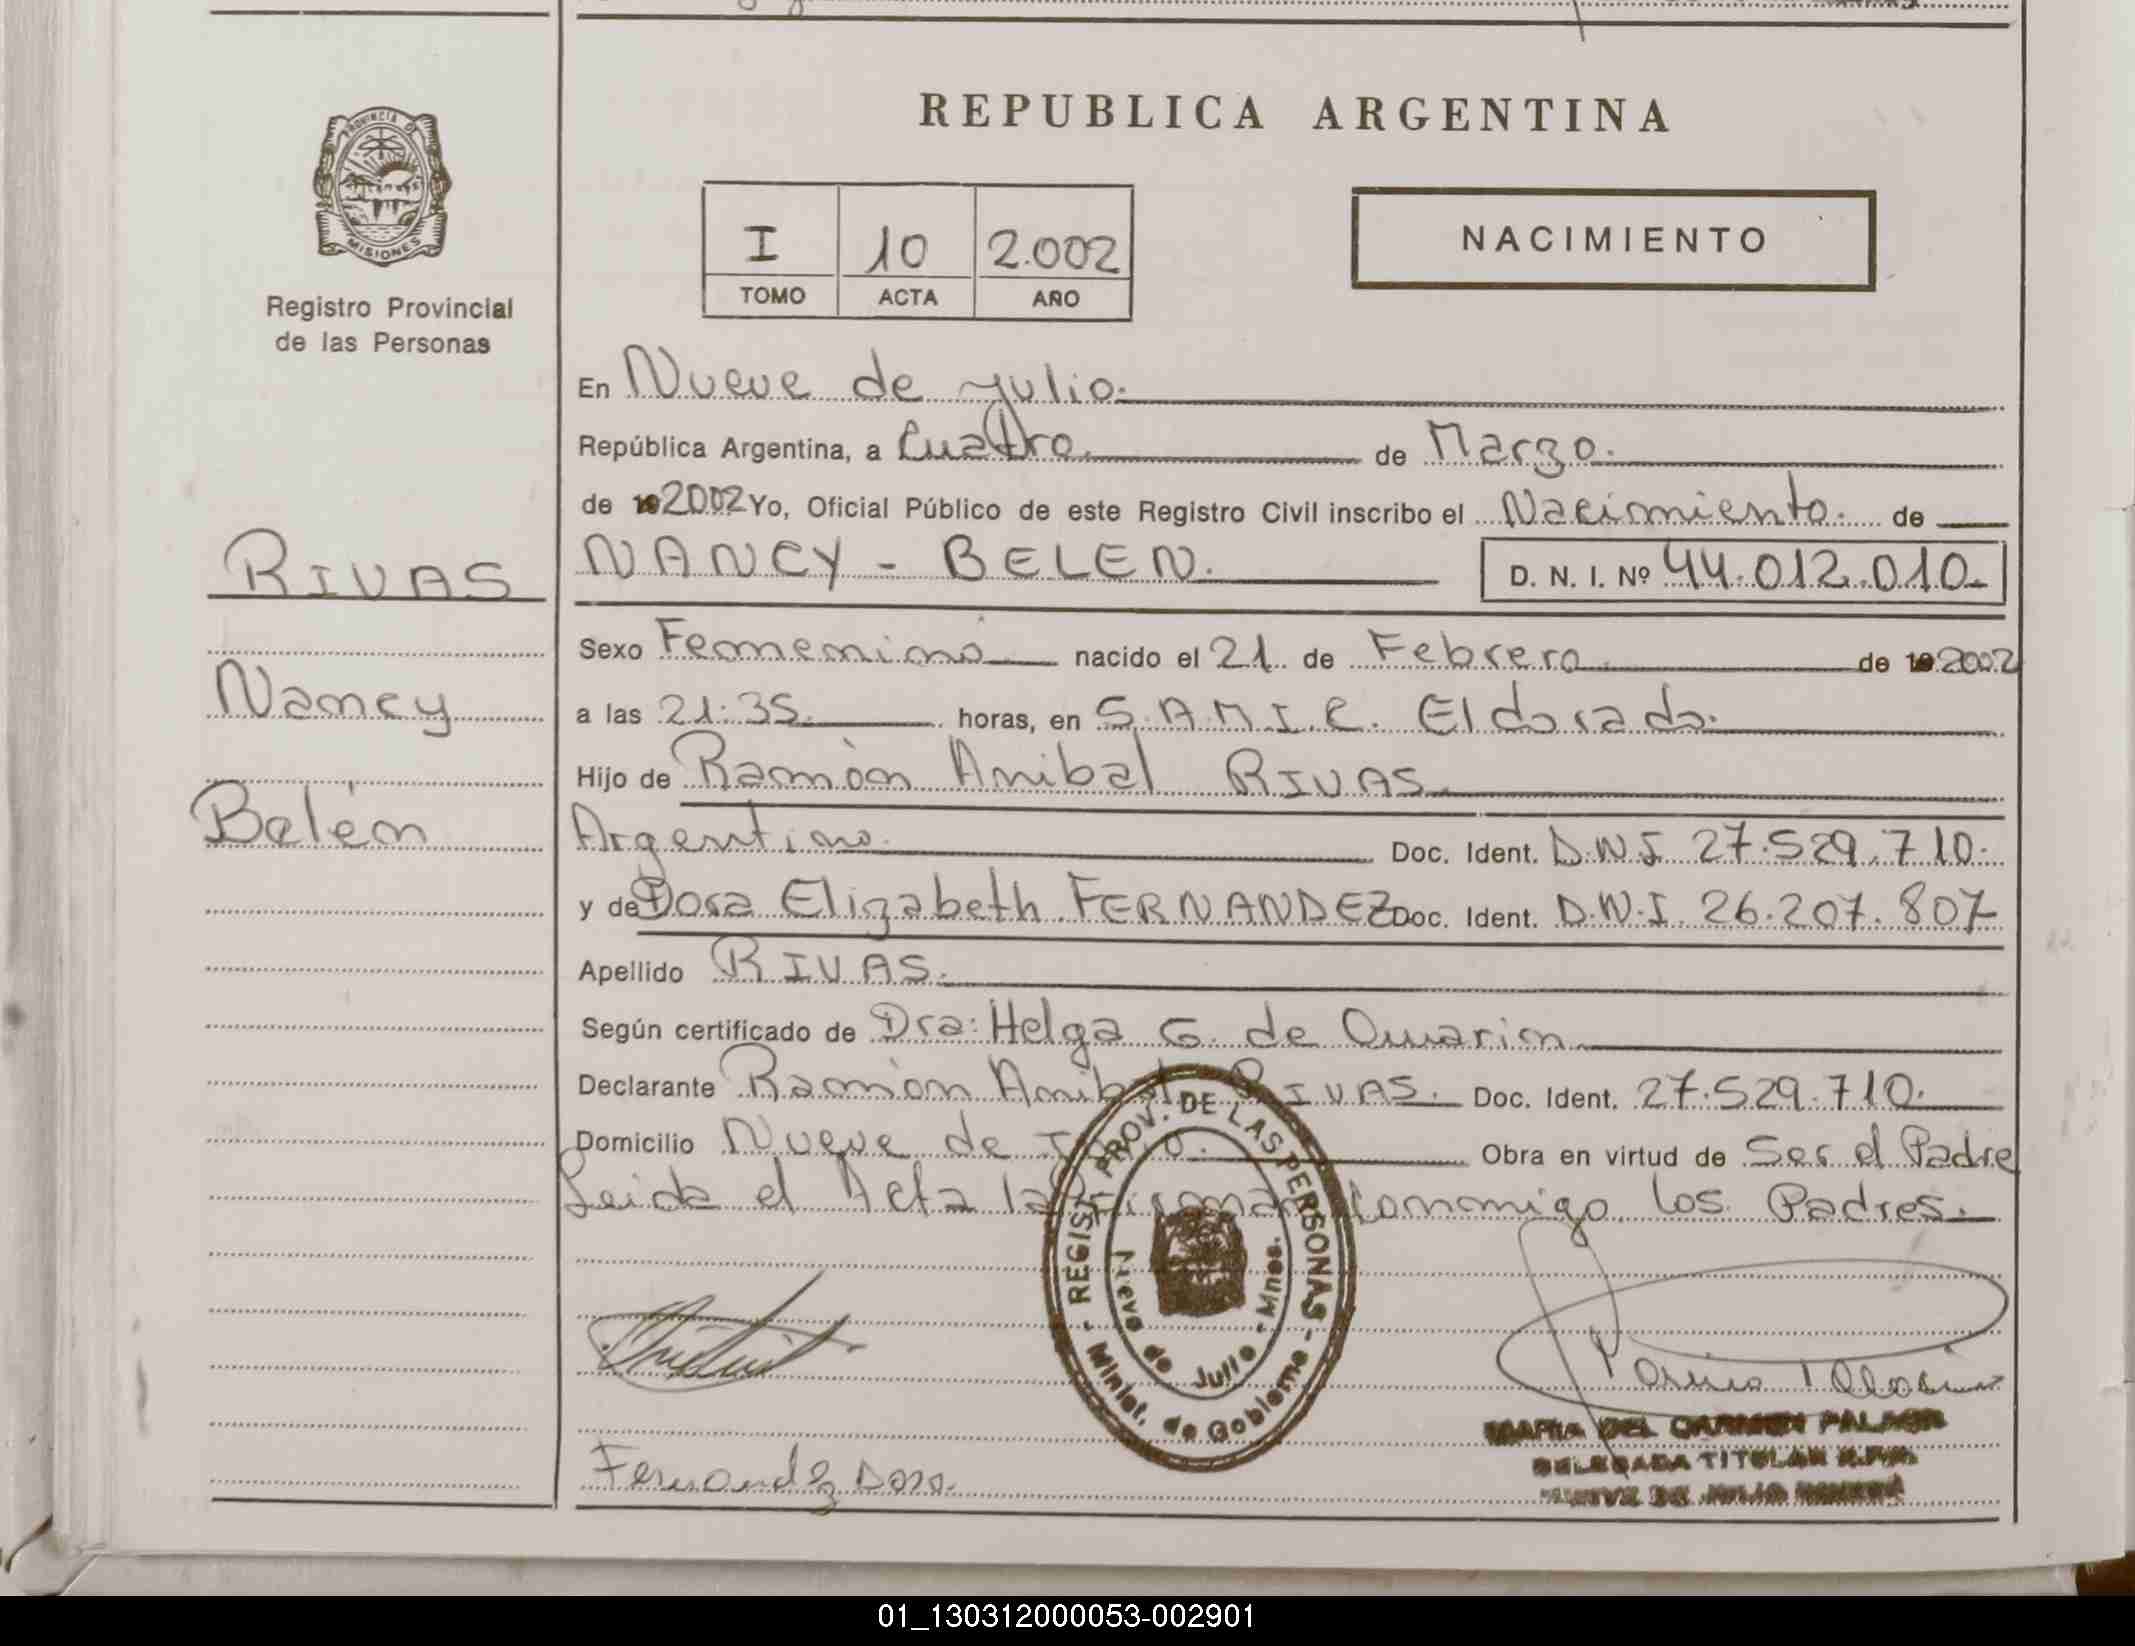 REPUBLICA ARGENTINA
PROVINCIA DE
MISIONES
Registro Provincial
de las Personas
I 10 2.002
TOMO ACTA AÑO
NACIMIENTO
En Nueve de Julio.
República Argentina, a Cuatro. de Marzo.
de 19 2002 Yo, Oficial Público de este Registro Civil inscribo el Nacimiento. de
RIVAS
NANCY - BELEN. D. N. I. Nº 44.012.010.
Sexo Femenino nacido el 21 de Febrero de 19 2002
Nancy
a las 21:35. horas, en S.A.M.I.C. Eldorado.
Hijo de Ramòn Anibal RIVAS.
Belén
Argentino. Doc. Ident. D.N.I 27.529.710.
y de Dora Elizabeth FERNANDEZ Doc. Ident. D.N.I. 26.207.807
Apellido RIVAS.
Según certificado de Dra: Helga G. de
Declarante Ramòn Anibal RIVAS. Doc. Ident. 27.529.710.
Domicilio Nueve de Julio. Obra en virtud de Ser el Padre
Leida el Acta la Firman Conmigo los Padres.
REGIST. PROV. DE LAS PERSONAS
- Minist. de Gobierno -
Nueve de Julio - Mnes.
Fernandez Dora.
MARIA DEL CARMEN
DELEGADA TITULAR R.P.P.
NUEVE DE JULIO
01_130312000053-002901